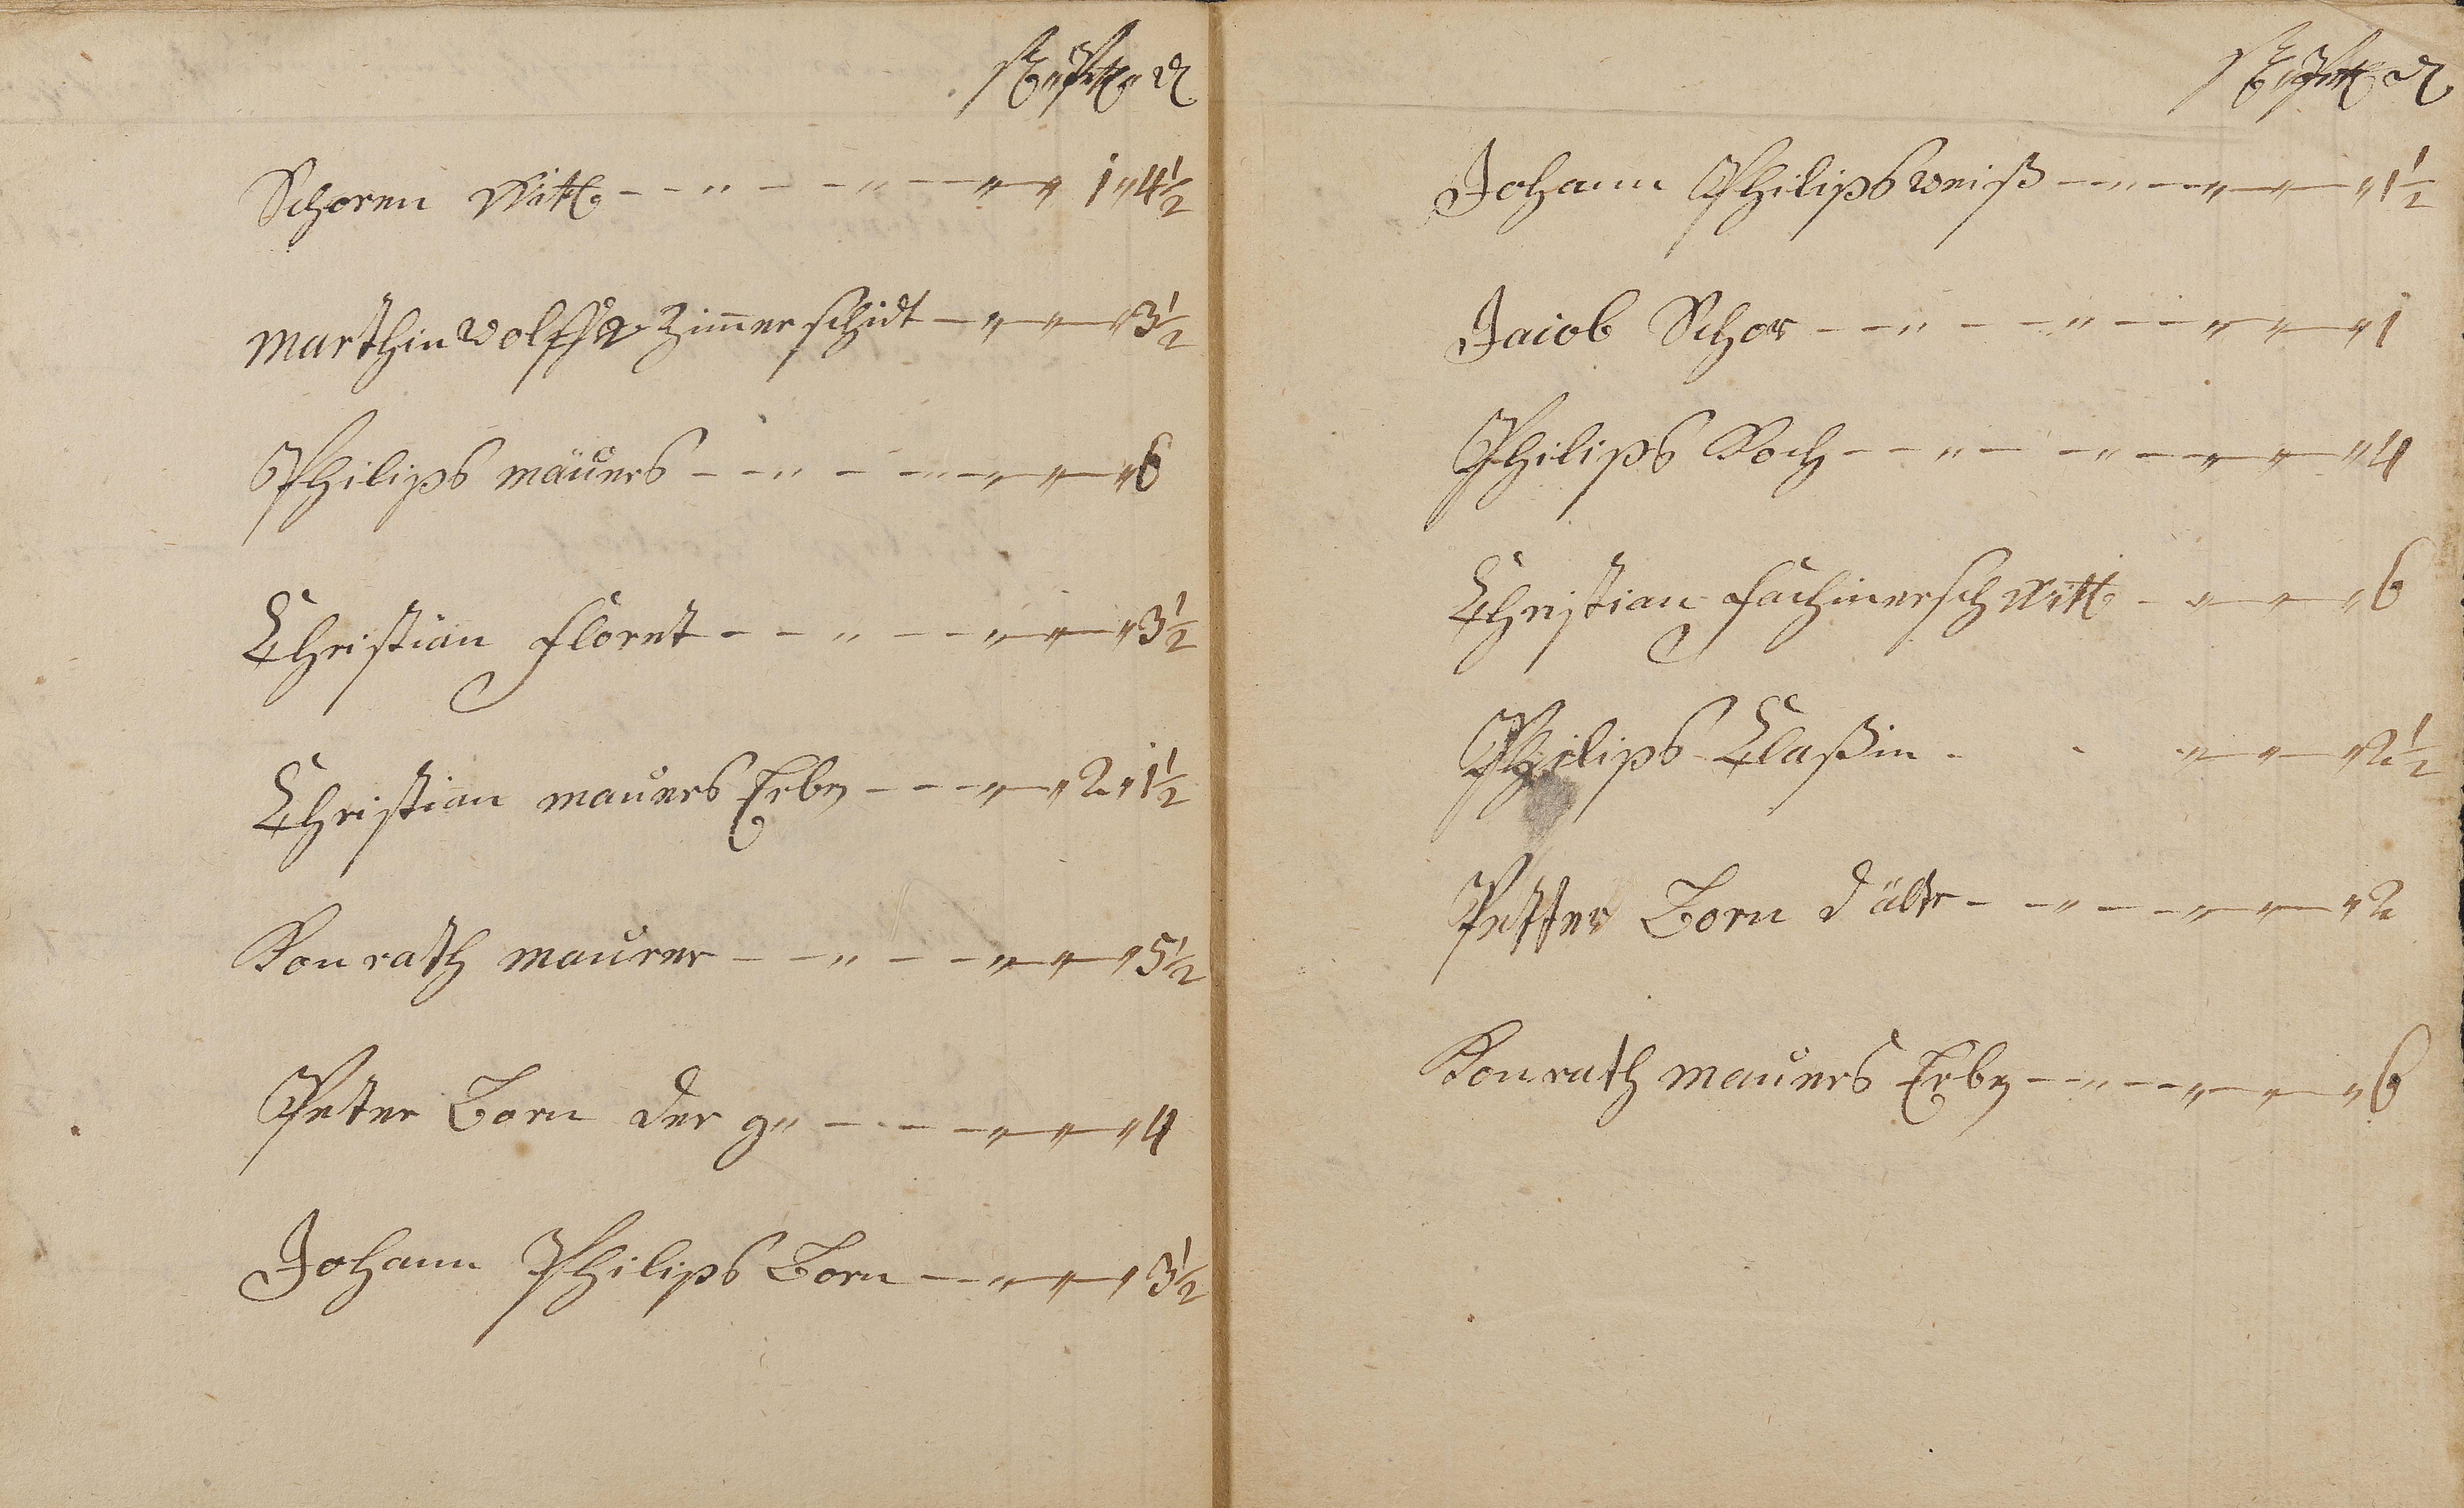 Schoren Witt. — — „ — — „ — „ — „ 1 „ 4 1/2
Marthin Wolff Zimmerschidt — „ — „ — „ 3 1/2
Philips mäuers — — „ — — „ — „ — „ — „ 6
Christian Floret — — „ — — „ — „ — „ 3 1/2
Christian mauers Erben — — — „ — „ 2 „ 1 1/2
Konrath maurer — — „ — — „ — „ — „ 5 1/2
Peter Born der g„ — — — — „ — „ — „ 4
Johann Philips Born — — „ — „ — „ 3 1/2
Johann Philips weiß — — „ — — „ — „ — „ 1 1/2
Jacob Schor — — „ — — „ — — „ — „ — „ 1
Philips Koch — — „ — — „ — — „ — „ — „ 4
Christian Witt. — „ — „ — „ 6
Philips Claßin - - „ — „ — „ 2 1/2
Petter Born d älter — — „ — — „ — „ — „ 2
Konrath mauers Erben — — „ — — „ — „ — „ 6